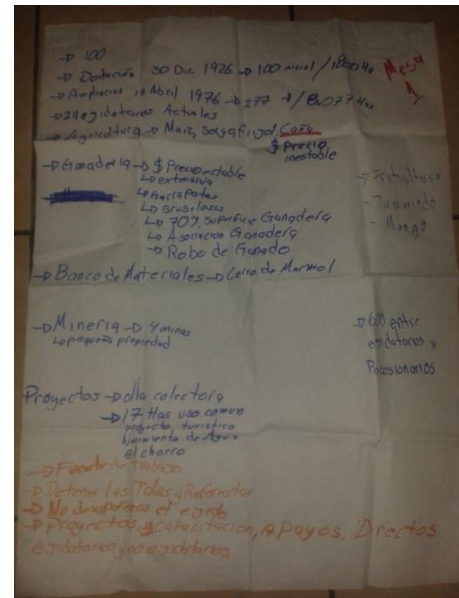 → 100
→ Dotación 30 Dic. 1926 → 100 inicial / 1800 Ha
Mesa
1
→ Ampliación 18 Abril 1976 → 277 → / 8,077 Ha
Actuales
→ Agricultura → Maiz, sorgo frijol Caña
$ Precio
inestable
→ Ganaderia → $ Precio estable
↳ extensiva
↳ Garrapatas
↳ Bruselosis
↳ 70% superficie Ganadera
↳ Asociacion Ganadera
→ Robo de Ganado
→ Fruticltura
- Tamarindo
- Mango
→ Banco de Materiales → Cerro de Marmol
→ Mineria → 4 minas
↳ pequeña propiedad
→ 600 entre
ejidatarios y
Posesionarios
Proyectos → olla colectora
→ 17 Has uso comun
proyecto, turistico
Nacimiento de Agua
el chorro
→ Fuente de Trabajo
→ Detener las Talas y Reforestar
→ No desaparesca el ejido
→ Proyectos, capacitacion, Apoyos, Directos
ejidatarios y no ejidatarios